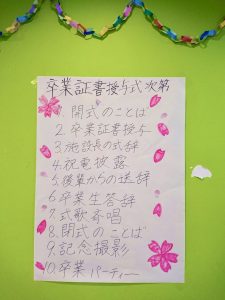 卒業証書授与式次第
1. 開式のことば
2. 卒業証書授与
3. 施設長の式辞
4. 祝電披露
5. 後輩からの送辞
6. 卒業生答辞
7. 式歌斉唱
8. 閉式のことば
9. 記念撮影
10. 卒業パーティー